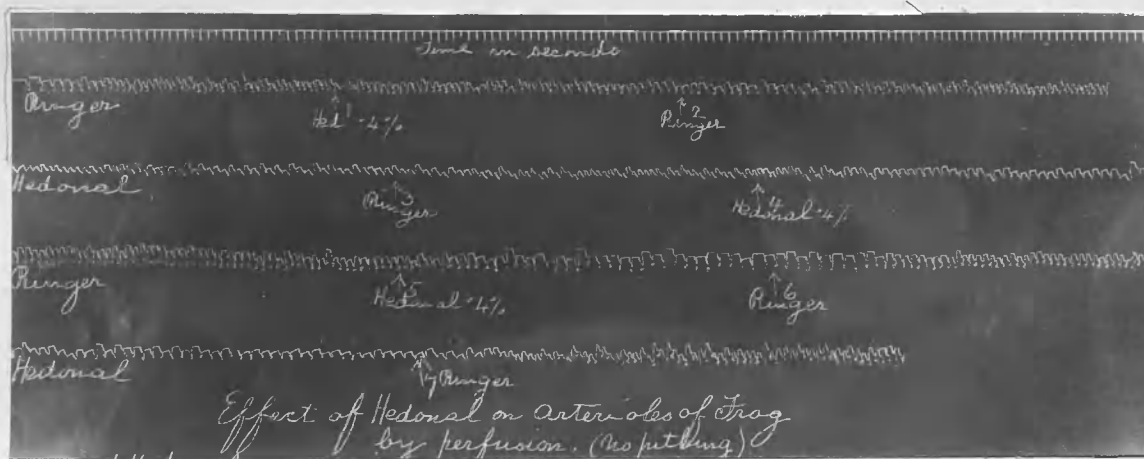 Time in seconds
Ringer
1
Hed ·4%
2
Ringer
Hedonal
3
Ringer
4
Hedonal ·4%
Ringer
5
Hedonal ·4%
6
Ringer
Hedonal
7 Ringer
Effect of Hedonal on arterioles of Frog
by perfusion. (No pithing)